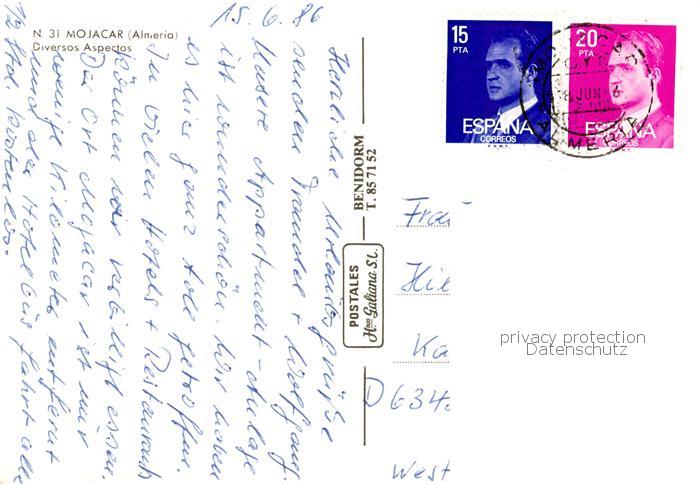 N. 31 MOJACAR (Almeria)
Diversos Aspectos
15.6.86
Herzliche Urlaubsgrüße
senden Traudel + Wolfgang.
Unsere Appartment-Anlage
ist wunderschön. Wir haben
es hier ganz toll getroffen.
In vielen Hotels + Restaurants
können wir verbilligt essen.
Der Ort Mojacar ist nur
Kilometer entfernt
und der Hotelbus fährt alle
1/2 Std. kostenlos.
BENIDORM
T. 85 71 52
POSTALES
Hnos Galiana S.L.
15
PTA
ESPAÑA
CORREOS
F.N.M.T.
20
PTA
ESPAÑA
CORREOS
F.N.M.T.
MOJACAR
JUN
ALMERIA
Frau
Hie
Kä
D 634
West
privacy protection
Datenschutz